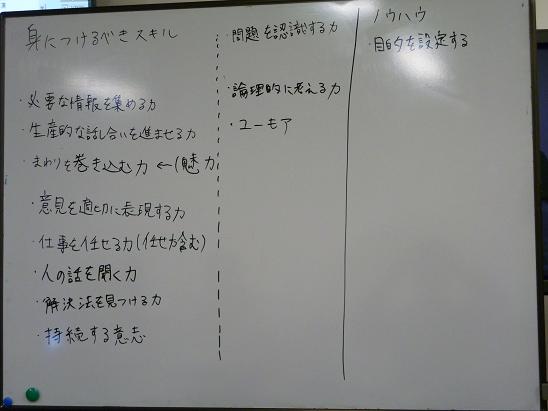 身につけるべきスキル
・必要な情報を集める力
・生産的な話し合いを進ませる力
・まわりを巻き込む力 ←(魅力
・意見を適切に表現する力
・仕事を任せる力(任せ方含む)
・人の話を聞く力
・解決法を見つける力
・持続する意志
・問題を認識する力
・論理的に考える力
・ユーモア
ノウハウ
・目的を設定する